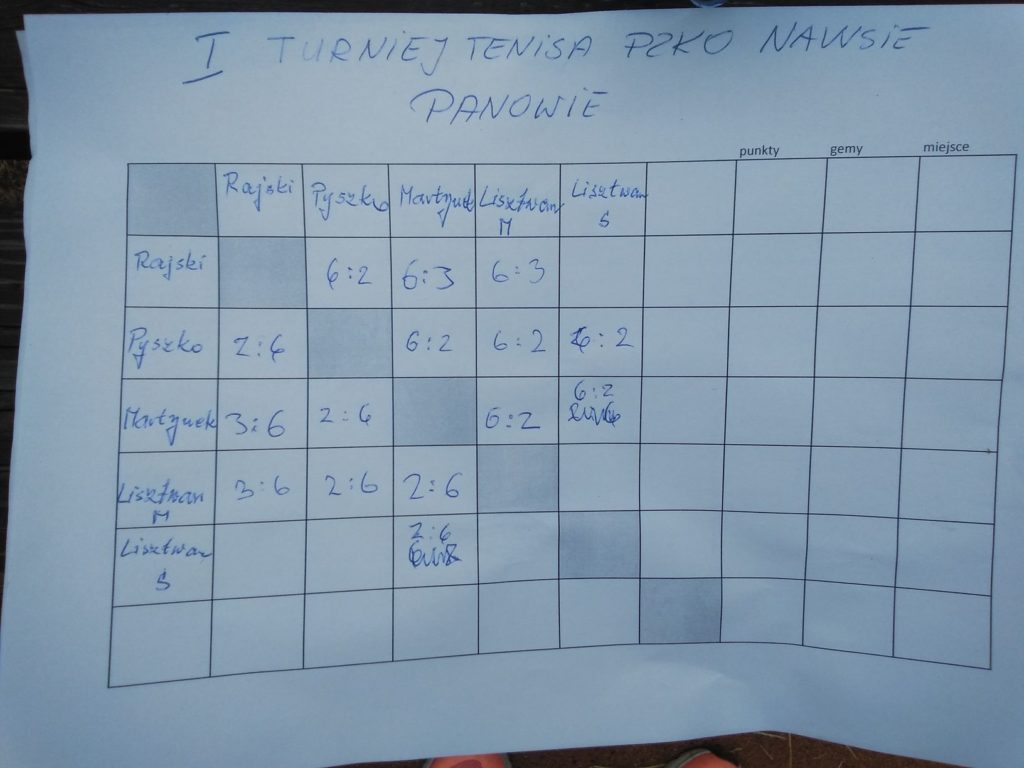 I TURNIEJ TENISA PZKO NAWSIE
PANOWIE
punkty gemy miejsce
Rajski Pyszko Martynek Lisztwan M Lisztwan S
Rajski 6:2 6:3 6:3
Pyszko 2:6 6:2 6:2 6:2
Martynek 3:6 2:6 6:2 6:2
Lisztwan M 3:6 2:6 2:6
Lisztwan S 2:6